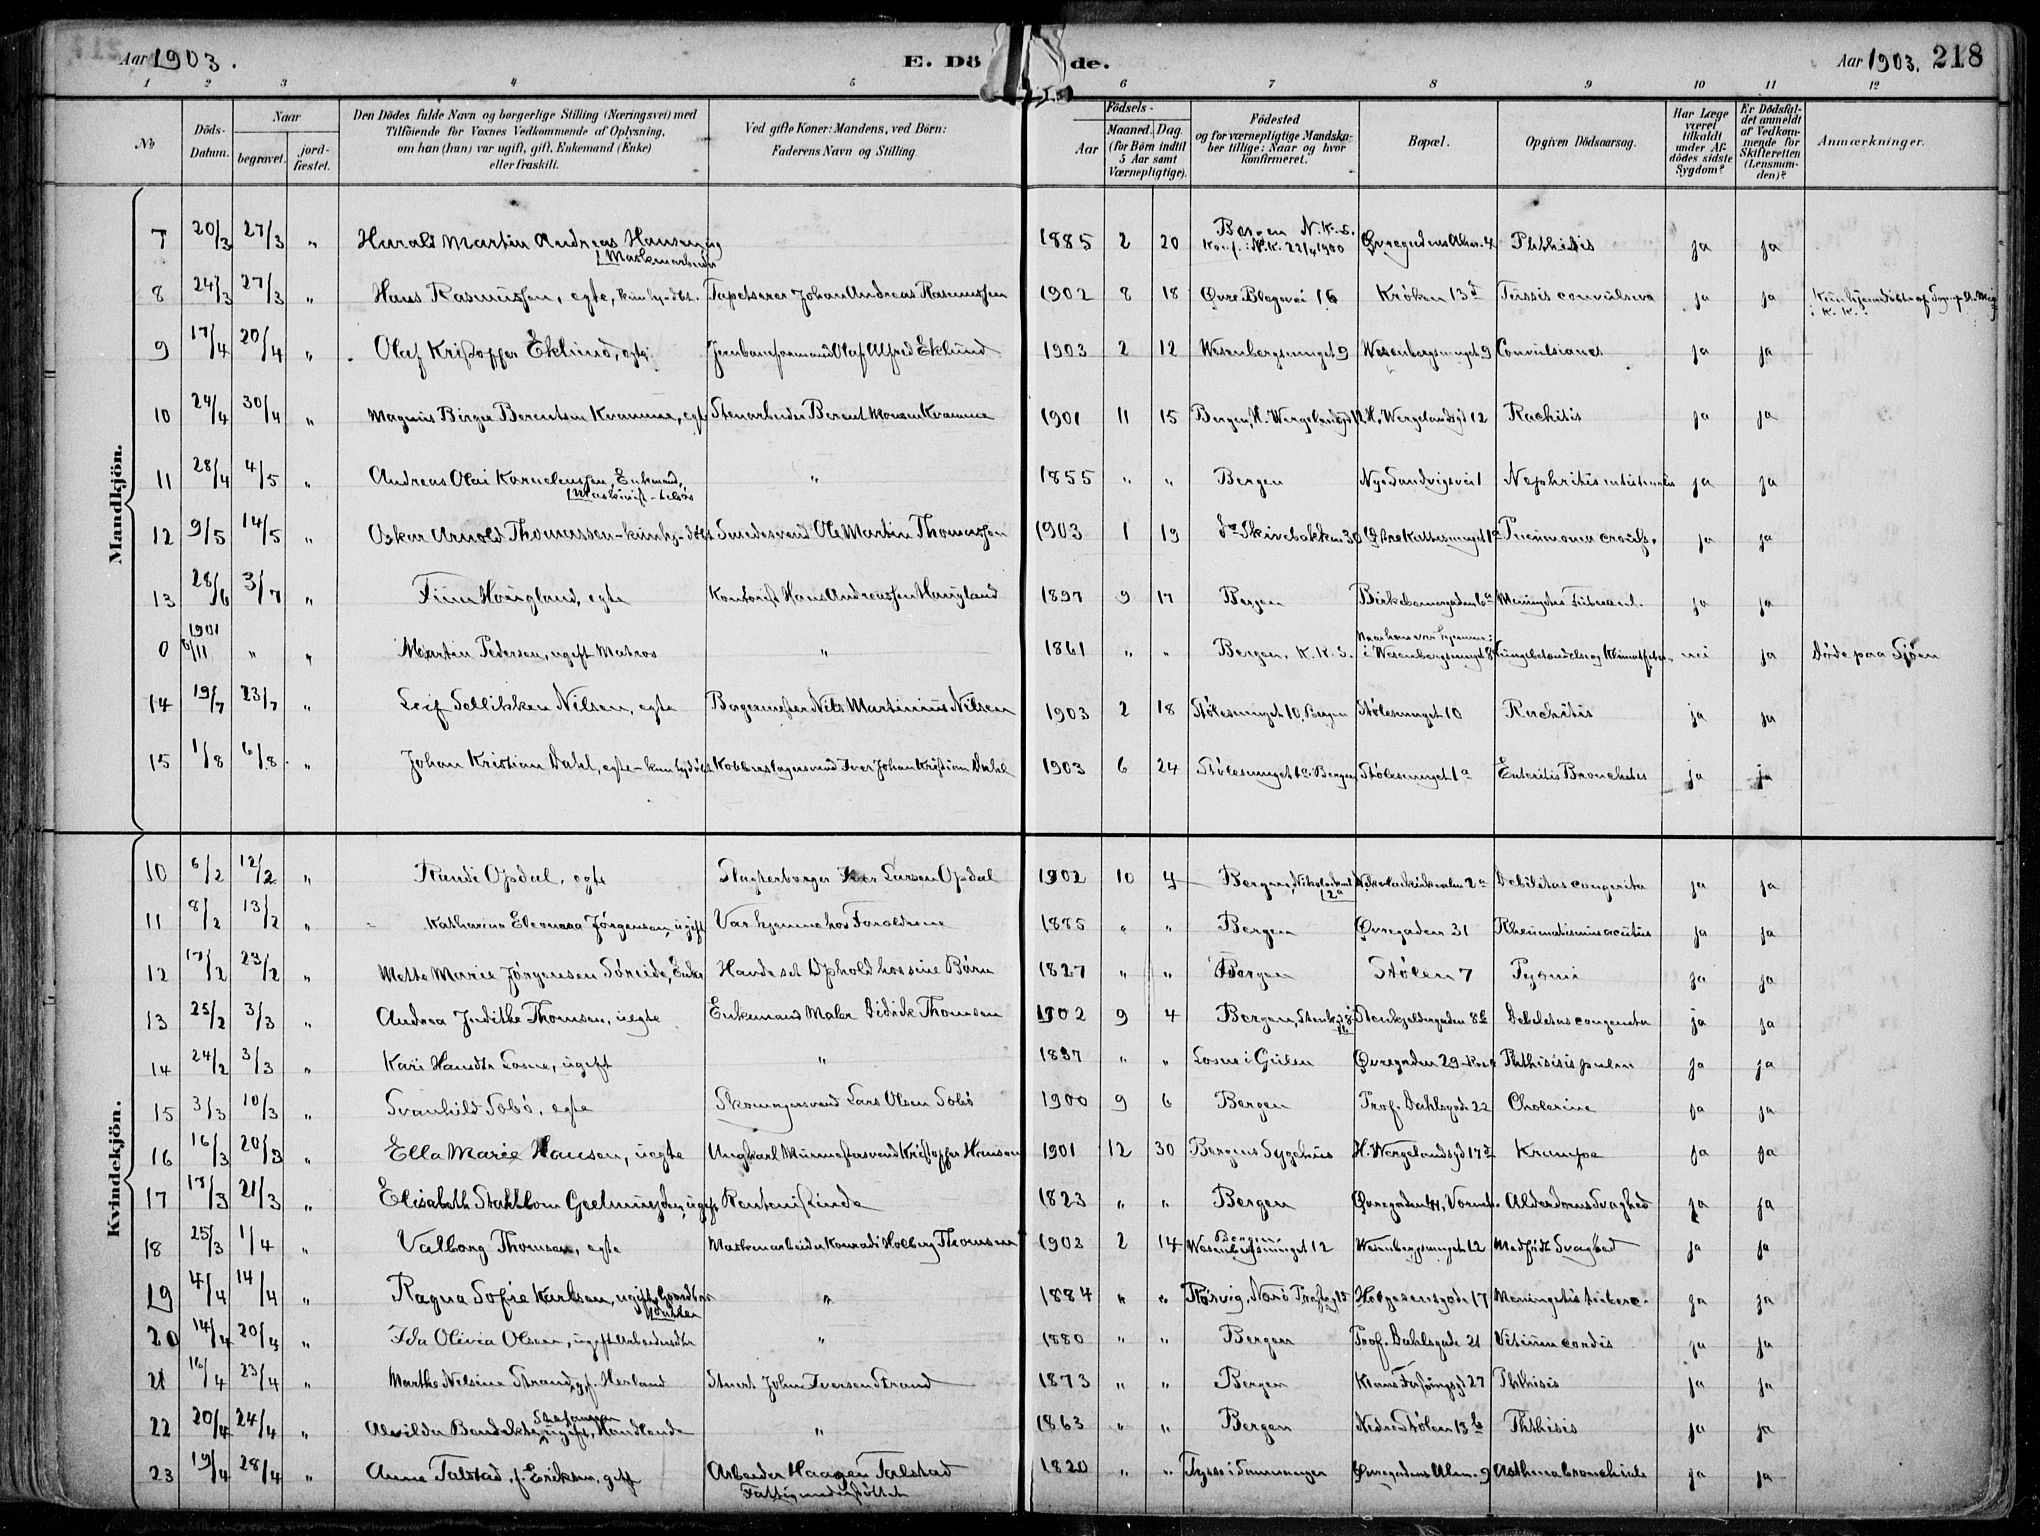 Aar 1903. E. Dö de. Aar 1903. 218
1 2 3 4 5 6 7 8 9 10 11 12
No Döds-Datum. Naar begravet. jord-fæstet. Den Dödes fulde Navn og borgerlige Stilling (Næringsvei) med Tilföiende for Voxnes Vedkommende af Oplysning, om han (hun) var ugift, gift, Enkemand (Enke) eller fraskilt. Ved gifte Koner: Mandens, ved Börn: Faderens Navn og Stilling. Födsels- Aar Maaned. Dag. (for Börn indtil 5 Aar samt Værnepligtige). Födested og for værnepligtige Mandskaber tillige: Naar og hvor konfirmeret. Bopæl. Opgiven Dödsaarsag. Har Læge været tilkaldt under Afdödes sidste Sygdom? Er Dödsfaldet anmeldt af Vedkommende for Skifteretten (Lensmanden)? Anmærkninger.
Mandkjön.
7 20/3 27/3 " Harald Martin Andreas Hansen, ug 1885 2 20 Bergen N.K.S. Øvregadens Alm. 4 Phthisis ja ja
Maskinarbeider Konf. i N.K. 22/4 1900
8 24/3 27/3 " Hans Rasmussen, egte, kun hj-dbt. Tapetserer Johan Andreas Rasmussen 1902 8 18 Øvre Blegevei 16 Krøken 13 Tussis convulsiva ja ja
9 17/4 20/4 " Olaf Kristoffer Eklund, egte Jernbaneformand Olaf Alfred Eklund 1903 2 12 Wesenbergsmuget 9 Wesenbergsmuget 9 Convulsiones ja ja
10 24/4 30/4 " Magnus Birger Berentsen Kvamme, egte Stenarbeider Berent Monsen Kvamme 1901 11 15 Bergen, H. Wergelandsgd 12 H. Wergelandsgd 12 Rachitis ja ja
11 28/4 4/5 " Andreas Olai Kornelensen, Enkemand, " 1855 " " Bergen Nye Sandvigsvei 1 Nephritis ja ja
12 9/5 14/5 " Oskar Arnold Thomassen - kun hj-döbt Smedesvend Ole Martin Thomassen 1903 1 19 Skivebakken 30 Øvre Kattesmuget 1a Pneumonia croup. ja ja
13 28/6 3/7 " Finn Haugland, egte Kontorist Hans Andreassen Haugland 1897 9 17 Bergen Birkebeinergaden 6a Meningitis Tubercul. ja ja
1901
0 6/11 " " Martin Pedersen, ugift Matros " 1861 " " Bergen, K.K.S. Naar han var hjemme: i Wesenbergsmuget 8 Lungebetændelse og Klimatfeber nei ja Döde paa Sjöen
14 19/7 23/7 " Leif Sellikken Nilsen, egte Bogermester Nils Martinius Nilsen 1903 2 18 Stölesmuget 10, Bergen Stölesmuget 10 Rachitis ja ja
15 1/8 6/8 " Johan Kristian Dahl, egte - kun hjdöbt Kobberslagersvend Iver Johan Kristian Dahl 1903 6 24 Stölesmuget 1a Bergen Stölesmuget 1a Enteritis Bronchitis ja ja
Kvindekjön.
10 6/2 12/2 " Randi Opdal, egte Slagterborger Iver Larsen Opdal 1902 10 4 Bergen, Nikolaikirkealm 2a Debilitas congenita ja ja
11 8/2 13/2 " Katharina Eleonora Jörgensen, ugift Var hjemme hos Foraeldrene 1885 " " Bergen Øvregaden 31 Rheumatismus acutus ja ja
12 17/2 23/2 " Mette Marie Jörgensen Söreide, Enke Havde sit Ophold hos sine Börn 1827 " " Bergen Stölen 7 Pyæmi ja ja
13 25/2 3/3 " Andrea Judithe Thomsen, uegte Enkemand Maler Didrik Thomsen 1902 9 4 Bergen, Stenkj 8b Stenkjeldergaden 8b Debilitas congenita ja ja
14 24/2 3/3 " Kari Hansdtr Losne, ugift " 1837 " " Losne i Gulen Øvregaden 29 Phthisis pulm ja ja
15 3/3 10/3 " Svanhild Sobö, egte Skomagersvend Lars Olsen Sobö 1900 9 6 Bergen Prof. Dahlsgade 22 Cholerine ja ja
16 16/3 20/3 " Ella Marie Hansen, uegte Ungkarl Murmestersvend Kristoffer Hansen 1901 12 30 Bergens Sygehus H. Wergelandsgd 17 Krampe ja ja
17 17/3 21/3 " Elisabeth Stahlbom Geelmuyden, ugift Rentenistinde 1823 " " Bergen Øvregaden 14, Alderdomssvaghed ja ja
18 25/3 1/4 " Valborg Thomsen, egte Maskinarbeider Konrad Holberg Thomsen 1903 2 14 Bergen Wesenbergsmuget 12 Wesenbergsmuget 12 Medfödt Svaghed ja ja
19 4/4 14/4 " Ragna Sofie Karlsen, ugift, " 1884 " " Rörvig, Nærö Helgesensgade 17 Meningitis tuberc. ja ja
20 14/4 20/4 " Ida Olivia Olsen, ugift Arbeiderdtr " 1880 " " Bergen Prof. Dahlsgade 21 Vitium cordis ja ja
21 16/4 23/4 " Marthe Nelsine Strand, gf. Herland Stuert John Iversen Strand 1873 " " Bergen Phthisis ja ja
22 20/4 24/4 " Alvilda Bendikte Stefansen ugift, Handlende " 1863 " " Bergen Nedre Stölen 13b Phthisis ja ja
23 19/4 28/4 " Anne Talstad, f. Eriksen, gift Arbeider Haagen Talstad 1820 " " Tysse i Samnanger Øvregadens Alm. 9 Asthma bronchiale ja ja
Fattigunderstöttet